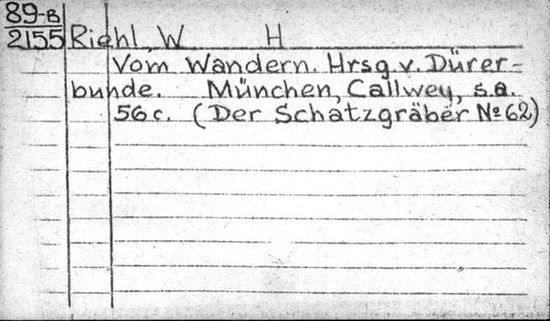 89-B
2155 Riehl, W H
Vom Wandern. Hrsg. v. Dürer-
bunde. München, Callwey, s.a.
56 c. (Der Schatzgräber № 62)